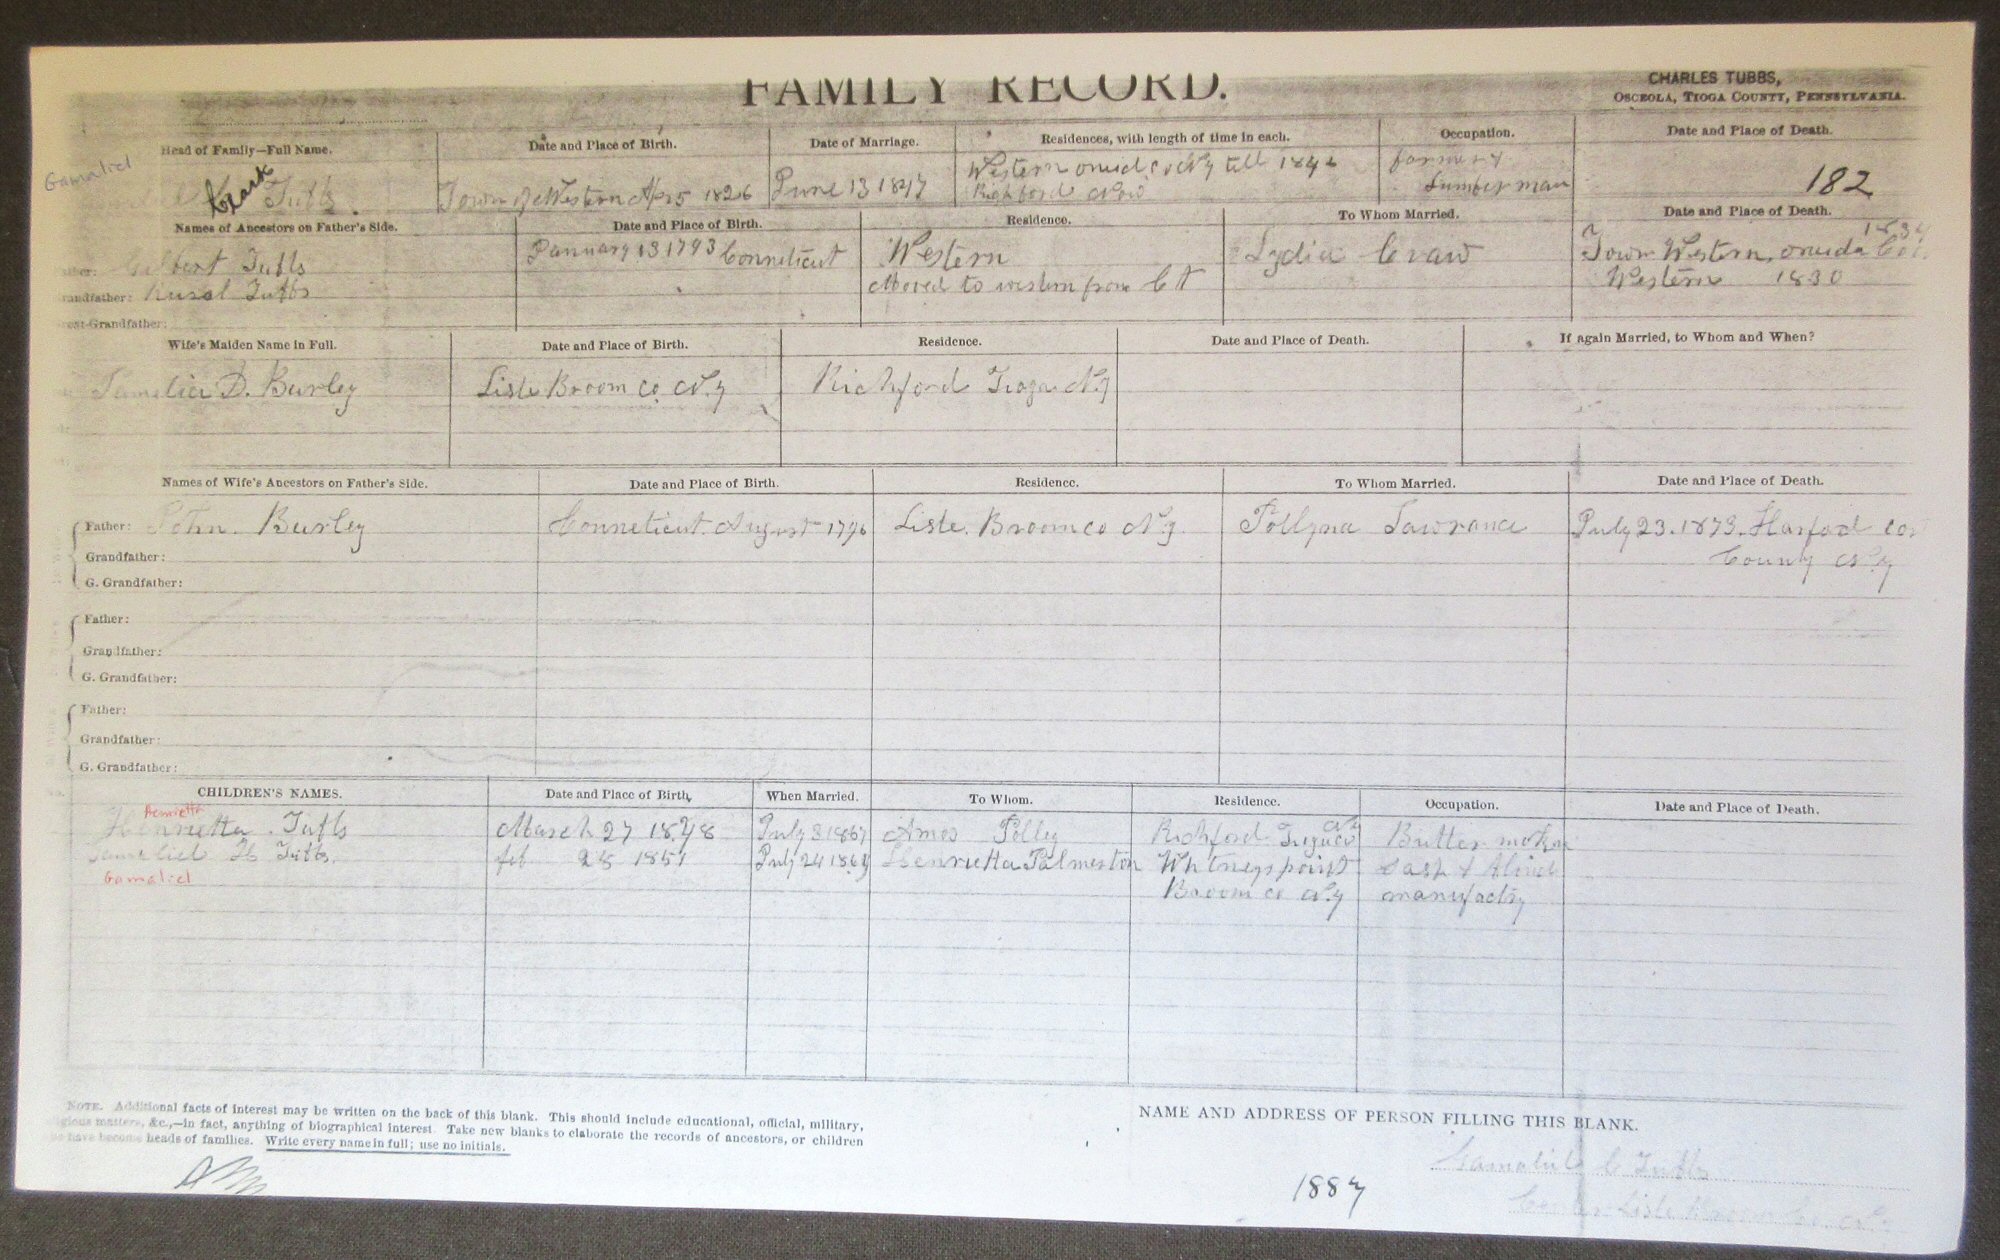 FAMILY RECORD.
CHARLES TUBBS,
OSCEOLA, TIOGA COUNTY, PENNSYLVANIA.
Head of Family—Full Name.
Date and Place of Birth.
Date of Marriage.
Residences, with length of time in each.
Occupation.
Date and Place of Death.
Gamaliel
Clark Tubbs.
Town of Western Apr 5 1826
June 13 1847
Western oneida co N y till
Richford Now
farmer &
Lumber man
182
Names of Ancestors on Father's Side.
Date and Place of Birth.
Residence.
To Whom Married.
Date and Place of Death.
Gilbert Tubbs
January 13 1793 Conneticut
Western
Lydia Craw
Town Western, oneida Co
randfather: Tubbs
Moved to western from Ct
Western 1830
eat-Grandfather:
Wife's Maiden Name in Full.
Date and Place of Birth.
Residence.
Date and Place of Death.
If again Married, to Whom and When?
D. Burley
Lisle Broom co. N y
Richford Tioga N y
Names of Wife's Ancestors on Father's Side.
Date and Place of Birth.
Residence.
To Whom Married.
Date and Place of Death.
Father: John Burley
Conneticut August 1796
Lisle. Broom co N y.
Lawrance
July 23. 1873. Harford Cor
County N. y
Grandfather:
G. Grandfather:
Father:
Grandfather:
G. Grandfather:
Father:
Grandfather:
G. Grandfather:
CHILDREN'S NAMES.
Date and Place of Birth,
When Married.
To Whom.
Residence.
Occupation.
Date and Place of Death.
Henrietta
Henrietta Tubbs
March 27 1848
July 3 1867
Amos Polley
Richford Tioga co N y
Butter maker
Tubbs.
feb 25 1851
July 24
Henrietta Palmeston
Whitneys point
Sash & Blind
Gamaliel
Broom co N. y
manufactry
NOTE. Additional facts of interest may be written on the back of this blank. This should include educational, official, military,
igious matters, &c.,—in fact, anything of biographical interest. Take new blanks to elaborate the records of ancestors, or children
o have become heads of families. Write every name in full; use no initials.
NAME AND ADDRESS OF PERSON FILLING THIS BLANK.
Gamaliel C Tubbs
1887
Center Lisle Broom Co. N.